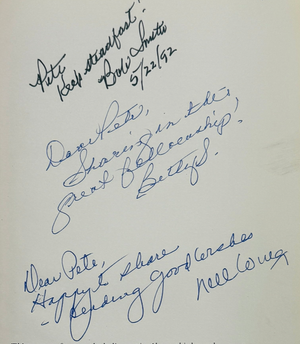 Pete
Keep steadfast!
Bob Smith
5/22/92
Dear Pete,
Sharing in the
great fellowship!
Betty S.
Dear Pete,
Happy to share
- Sending Good Wishes
Nell Wing